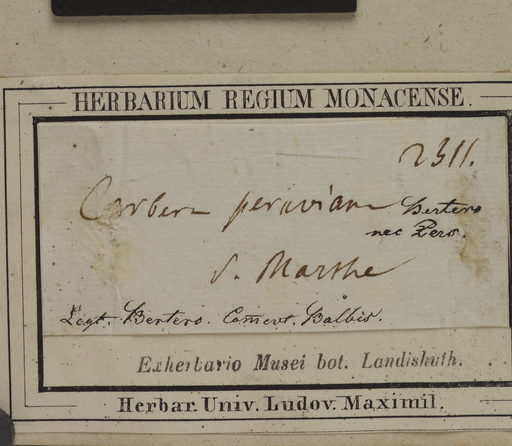 HERBARIUM REGIUM MONACENSE.
2311.
Cerbera peruviana Bertero
nec Pers.
S. Marthe
Legt. Bertero. Comevt. Balbis.
Exherbario Musei bot. Landishuth.
Herbar. Univ. Ludov. Maximil.